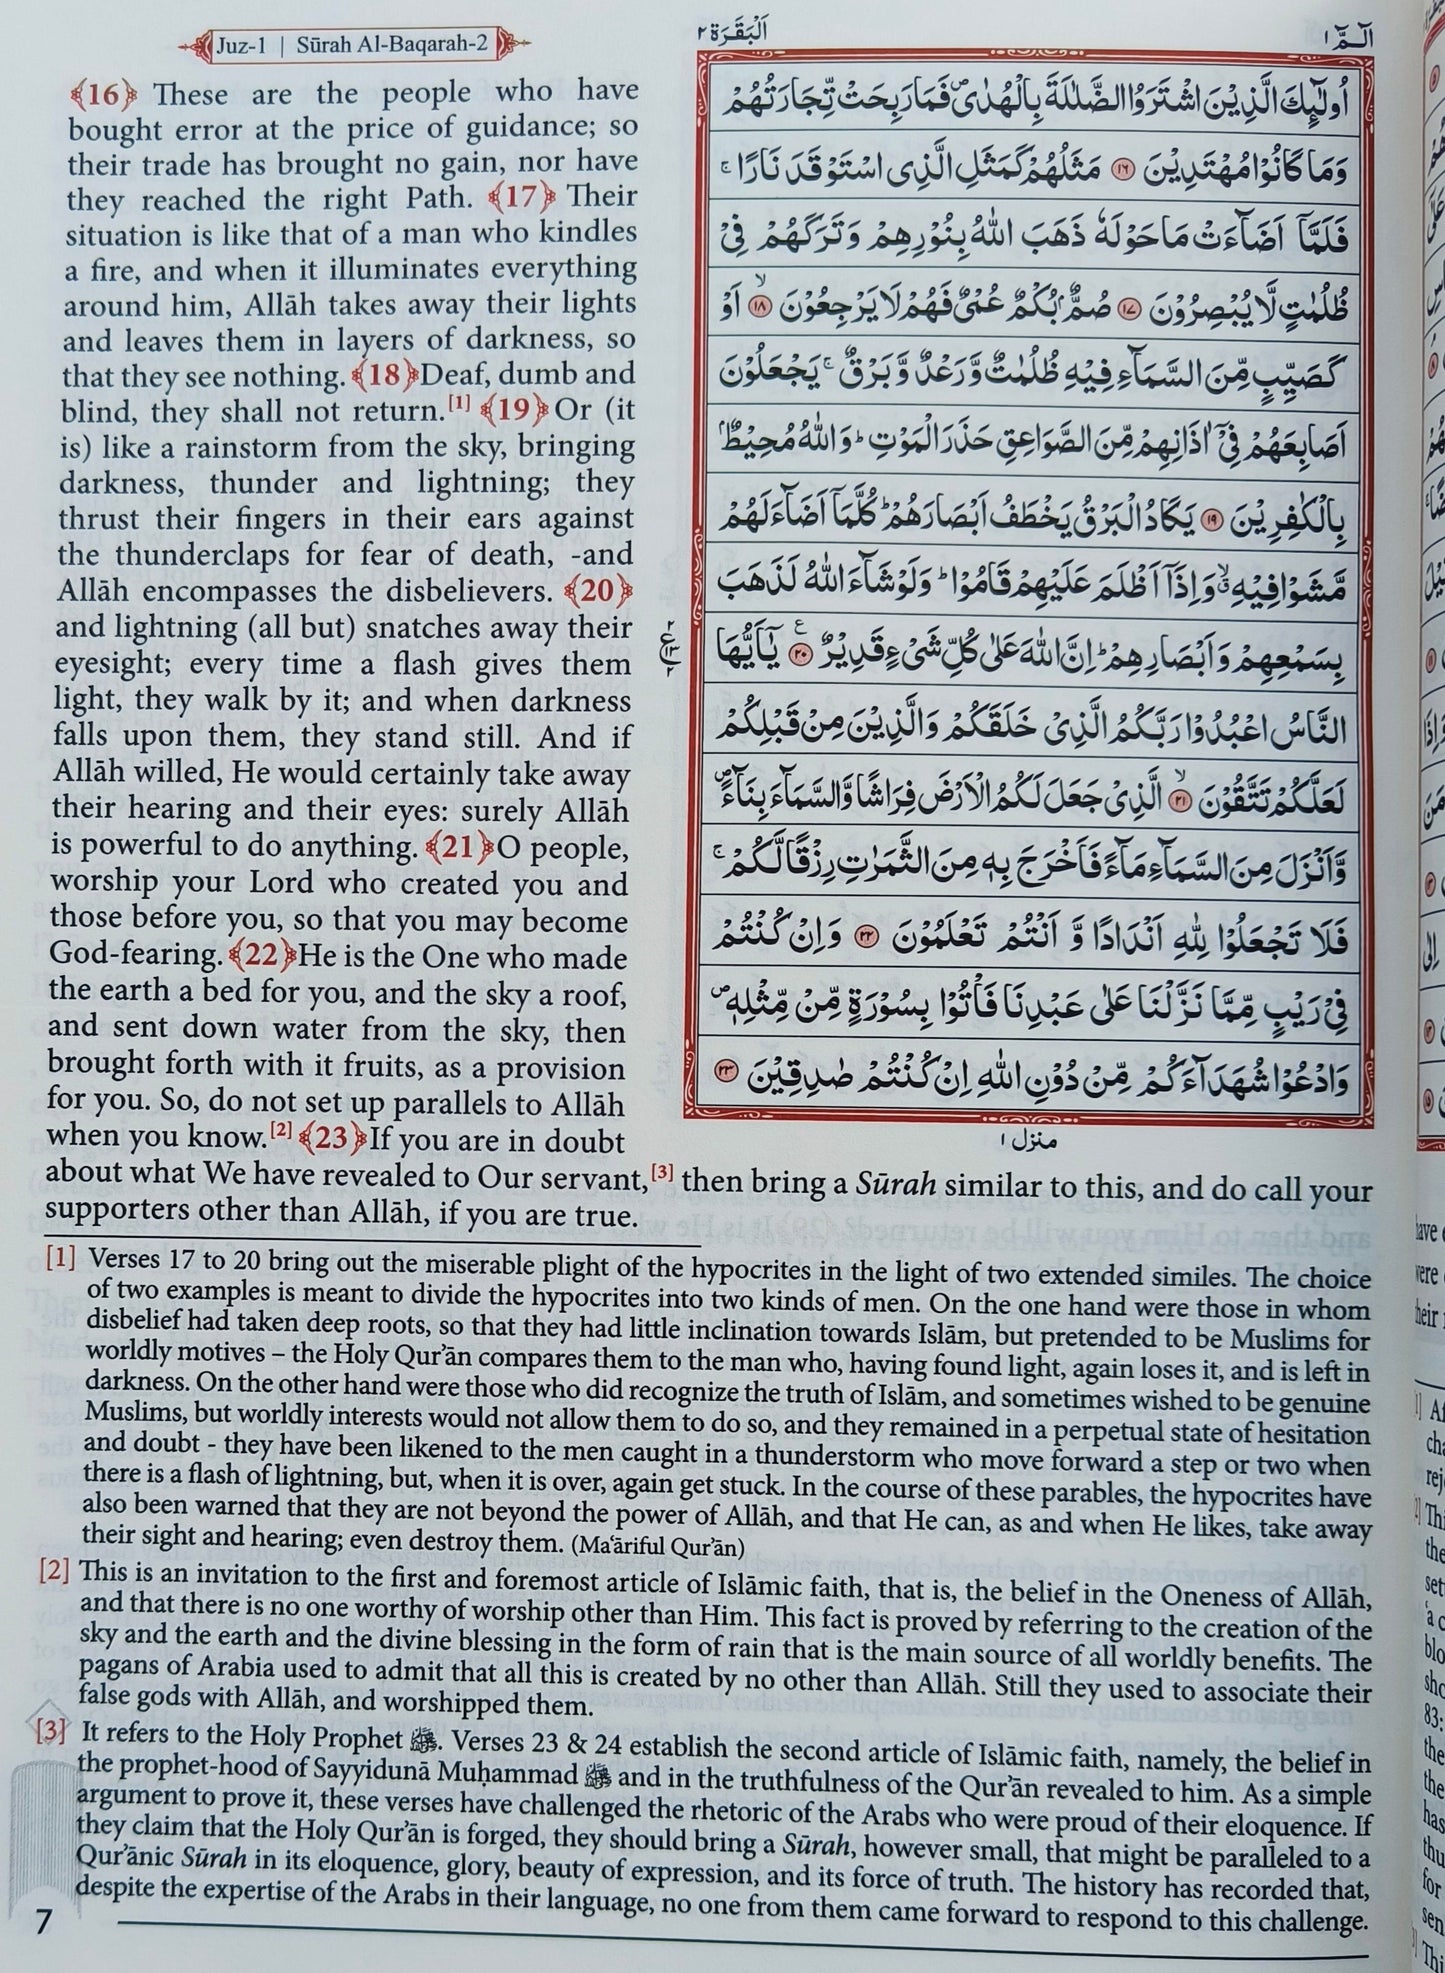 Juz-1 | Sūrah Al-Baqarah-2
اَلْبَقَرَة ٢
الٓمّٓ ١
﴾16﴿ These are the people who have
bought error at the price of guidance; so
their trade has brought no gain, nor have
they reached the right Path. ﴾17﴿ Their
situation is like that of a man who kindles
a fire, and when it illuminates everything
around him, Allāh takes away their lights
and leaves them in layers of darkness, so
that they see nothing. ﴾18﴿ Deaf, dumb and
blind, they shall not return.[1] ﴾19﴿ Or (it
is) like a rainstorm from the sky, bringing
darkness, thunder and lightning; they
thrust their fingers in their ears against
the thunderclaps for fear of death, -and
Allāh encompasses the disbelievers. ﴾20﴿
and lightning (all but) snatches away their
eyesight; every time a flash gives them
light, they walk by it; and when darkness
falls upon them, they stand still. And if
Allāh willed, He would certainly take away
their hearing and their eyes: surely Allāh
is powerful to do anything. ﴾21﴿ O people,
worship your Lord who created you and
those before you, so that you may become
God-fearing. ﴾22﴿ He is the One who made
the earth a bed for you, and the sky a roof,
and sent down water from the sky, then
brought forth with it fruits, as a provision
for you. So, do not set up parallels to Allāh
when you know.[2] ﴾23﴿ If you are in doubt
about what We have revealed to Our servant,[3] then bring a Sūrah similar to this, and do call your
supporters other than Allāh, if you are true.
اُولٰٓئِكَ الَّذِيْنَ اشْتَرَوُا الضَّلٰلَةَ بِالْهُدٰى ۪ فَمَا رَبِحَتْ تِّجَارَتُهُمْ
وَمَا كَانُوْا مُهْتَدِيْنَ ١٦ مَثَلُهُمْ كَمَثَلِ الَّذِى اسْتَوْقَدَ نَارًا ۚ
فَلَمَّآ اَضَآءَتْ مَا حَوْلَهٗ ذَهَبَ اللّٰهُ بِنُوْرِهِمْ وَتَرَكَهُمْ فِيْ
ظُلُمٰتٍ لَّا يُبْصِرُوْنَ ١٧ صُمٌّۢ بُكْمٌ عُمْيٌ فَهُمْ لَا يَرْجِعُوْنَ ١٨ۙ اَوْ
كَصَيِّبٍ مِّنَ السَّمَآءِ فِيْهِ ظُلُمٰتٌ وَّرَعْدٌ وَّبَرْقٌ ۚ يَجْعَلُوْنَ
اَصَابِعَهُمْ فِيْٓ اٰذَانِهِمْ مِّنَ الصَّوَاعِقِ حَذَرَ الْمَوْتِ ؕ وَاللّٰهُ مُحِيْطٌۢ
بِالْكٰفِرِيْنَ ١٩ يَكَادُ الْبَرْقُ يَخْطَفُ اَبْصَارَهُمْ ؕ كُلَّمَآ اَضَآءَ لَهُمْ
مَّشَوْا فِيْهِ ۙ وَاِذَآ اَظْلَمَ عَلَيْهِمْ قَامُوْا ؕ وَلَوْ شَآءَ اللّٰهُ لَذَهَبَ
بِسَمْعِهِمْ وَاَبْصَارِهِمْ ؕ اِنَّ اللّٰهَ عَلٰى كُلِّ شَيْءٍ قَدِيْرٌ ٢٠ يٰٓاَيُّهَا
النَّاسُ اعْبُدُوْا رَبَّكُمُ الَّذِيْ خَلَقَكُمْ وَالَّذِيْنَ مِنْ قَبْلِكُمْ
لَعَلَّكُمْ تَتَّقُوْنَ ٢١ۙ الَّذِيْ جَعَلَ لَكُمُ الْاَرْضَ فِرَاشًا وَّالسَّمَآءَ بِنَآءً ۪
وَّاَنْزَلَ مِنَ السَّمَآءِ مَآءً فَاَخْرَجَ بِهٖ مِنَ الثَّمَرٰتِ رِزْقًا لَّكُمْ ۚ
فَلَا تَجْعَلُوْا لِلّٰهِ اَنْدَادًا وَّ اَنْتُمْ تَعْلَمُوْنَ ٢٢ وَاِنْ كُنْتُمْ
فِيْ رَيْبٍ مِّمَّا نَزَّلْنَا عَلٰى عَبْدِنَا فَاْتُوْا بِسُوْرَةٍ مِّنْ مِّثْلِهٖ ۪
وَادْعُوْا شُهَدَآءَكُمْ مِّنْ دُوْنِ اللّٰهِ اِنْ كُنْتُمْ صٰدِقِيْنَ ٢٣
منزل ١
[1] Verses 17 to 20 bring out the miserable plight of the hypocrites in the light of two extended similes. The choice
of two examples is meant to divide the hypocrites into two kinds of men. On the one hand were those in whom
disbelief had taken deep roots, so that they had little inclination towards Islām, but pretended to be Muslims for
worldly motives – the Holy Qur’ān compares them to the man who, having found light, again loses it, and is left in
darkness. On the other hand were those who did recognize the truth of Islām, and sometimes wished to be genuine
Muslims, but worldly interests would not allow them to do so, and they remained in a perpetual state of hesitation
and doubt - they have been likened to the men caught in a thunderstorm who move forward a step or two when
there is a flash of lightning, but, when it is over, again get stuck. In the course of these parables, the hypocrites have
also been warned that they are not beyond the power of Allāh, and that He can, as and when He likes, take away
their sight and hearing; even destroy them. (Ma‘āriful Qur’ān)
[2] This is an invitation to the first and foremost article of Islāmic faith, that is, the belief in the Oneness of Allāh,
and that there is no one worthy of worship other than Him. This fact is proved by referring to the creation of the
sky and the earth and the divine blessing in the form of rain that is the main source of all worldly benefits. The
pagans of Arabia used to admit that all this is created by no other than Allāh. Still they used to associate their
false gods with Allāh, and worshipped them.
[3] It refers to the Holy Prophet ﷺ. Verses 23 & 24 establish the second article of Islāmic faith, namely, the belief in
the prophet-hood of Sayyidunā Muḥammad ﷺ and in the truthfulness of the Qur’ān revealed to him. As a simple
argument to prove it, these verses have challenged the rhetoric of the Arabs who were proud of their eloquence. If
they claim that the Holy Qur’ān is forged, they should bring a Sūrah, however small, that might be paralleled to a
Qur’ānic Sūrah in its eloquence, glory, beauty of expression, and its force of truth. The history has recorded that,
despite the expertise of the Arabs in their language, no one from them came forward to respond to this challenge.
7